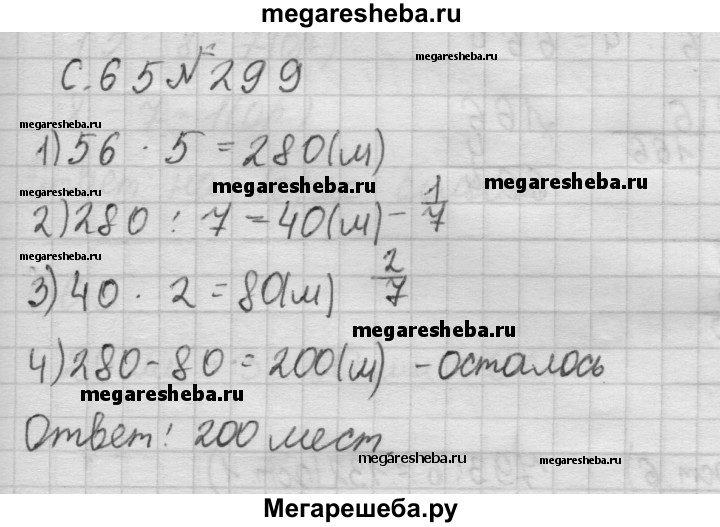 megaresheba.ru
С. 65 № 299
megaresheba.ru
megaresheba.ru
1) 56 · 5 = 280 (м)
megaresheba.ru
megaresheba.ru
megaresheba.ru
2) 280 : 7 = 40 (м) - 1/7
megaresheba.ru
3) 40 · 2 = 80 (м) 2/7
megaresheba.ru
4) 280 - 80 = 200 (м) - осталось
megaresheba.ru
Ответ: 200 мест
megaresheba.ru
megaresheba.ru
Мегарешеба.ру